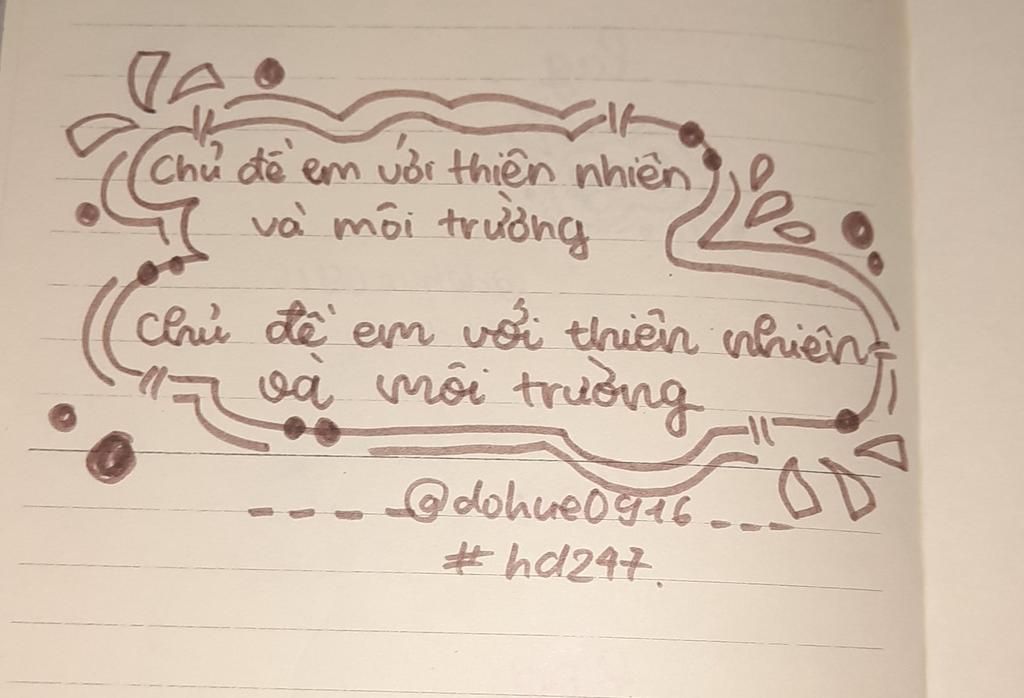 Chủ đề em với thiên nhiên
và môi trường
Chủ đề em với thiên nhiên
và môi trường
@dohue0916
#hd247.